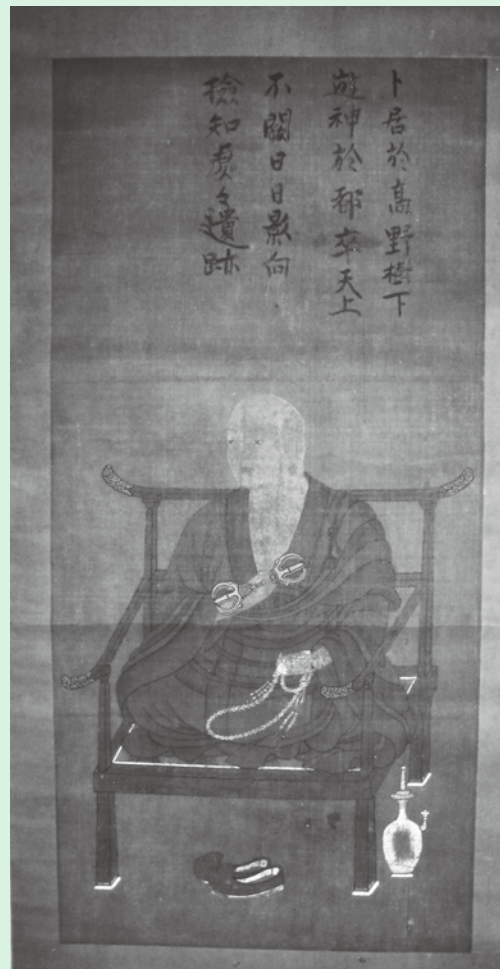 卜居於高野樹下
遊神於都率天上
不闕日日影向
撿知處々遺跡